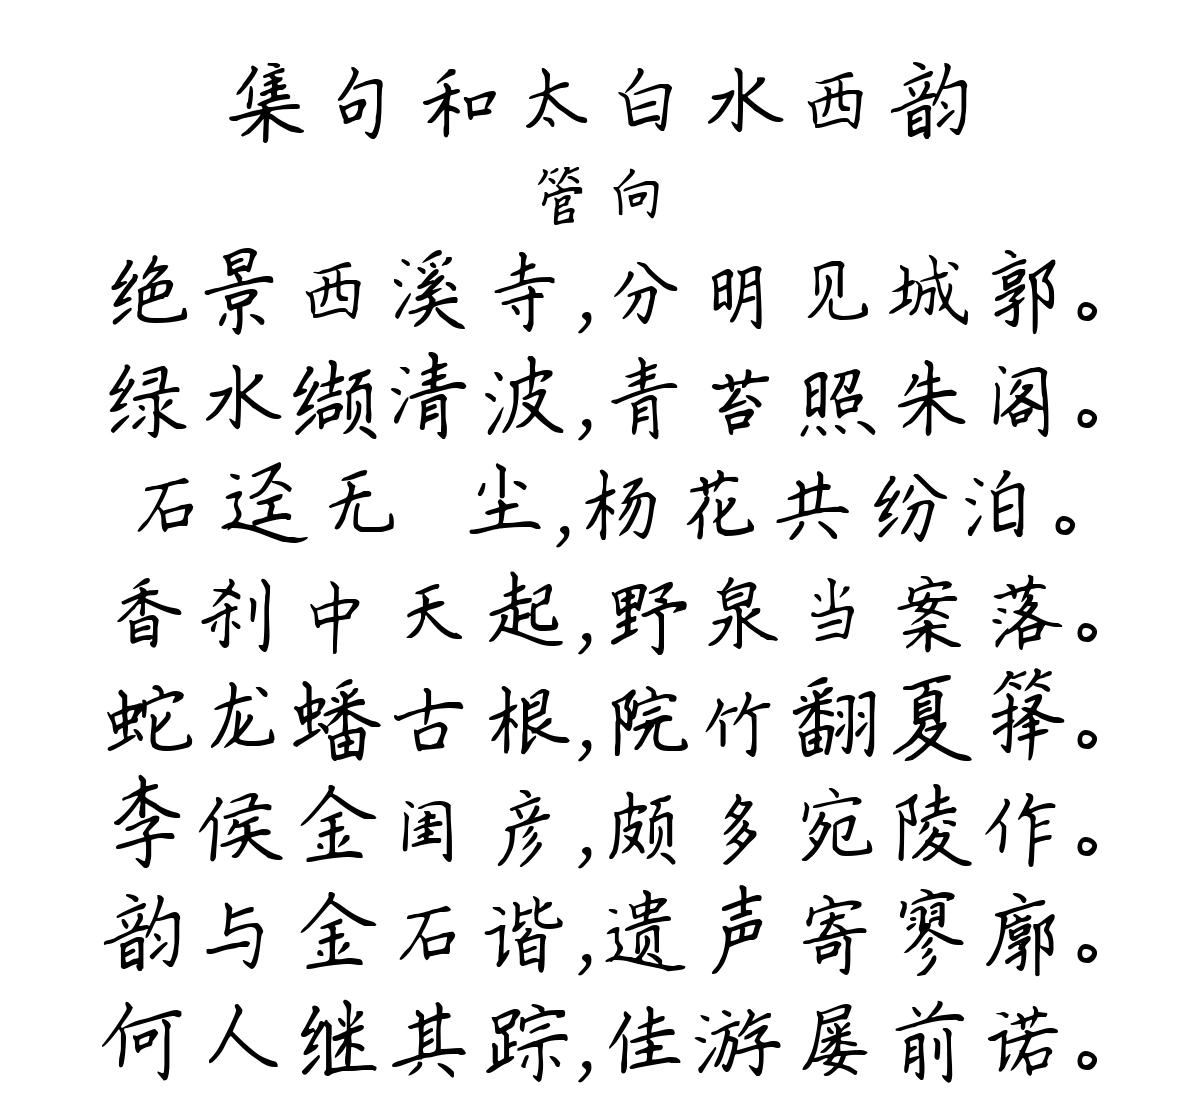 集句和太白水西韵
管向
绝景西溪寺,分明见城郭。
绿水缬清波,青苔照朱阁。
石迳无 尘,杨花共纷泊。
香刹中天起,野泉当案落。
蛇龙蟠古根,院竹翻夏箨。
李侯金闺彦,颇多宛陵作。
韵与金石谐,遗声寄寥廓。
何人继其踪,佳游屡前诺。